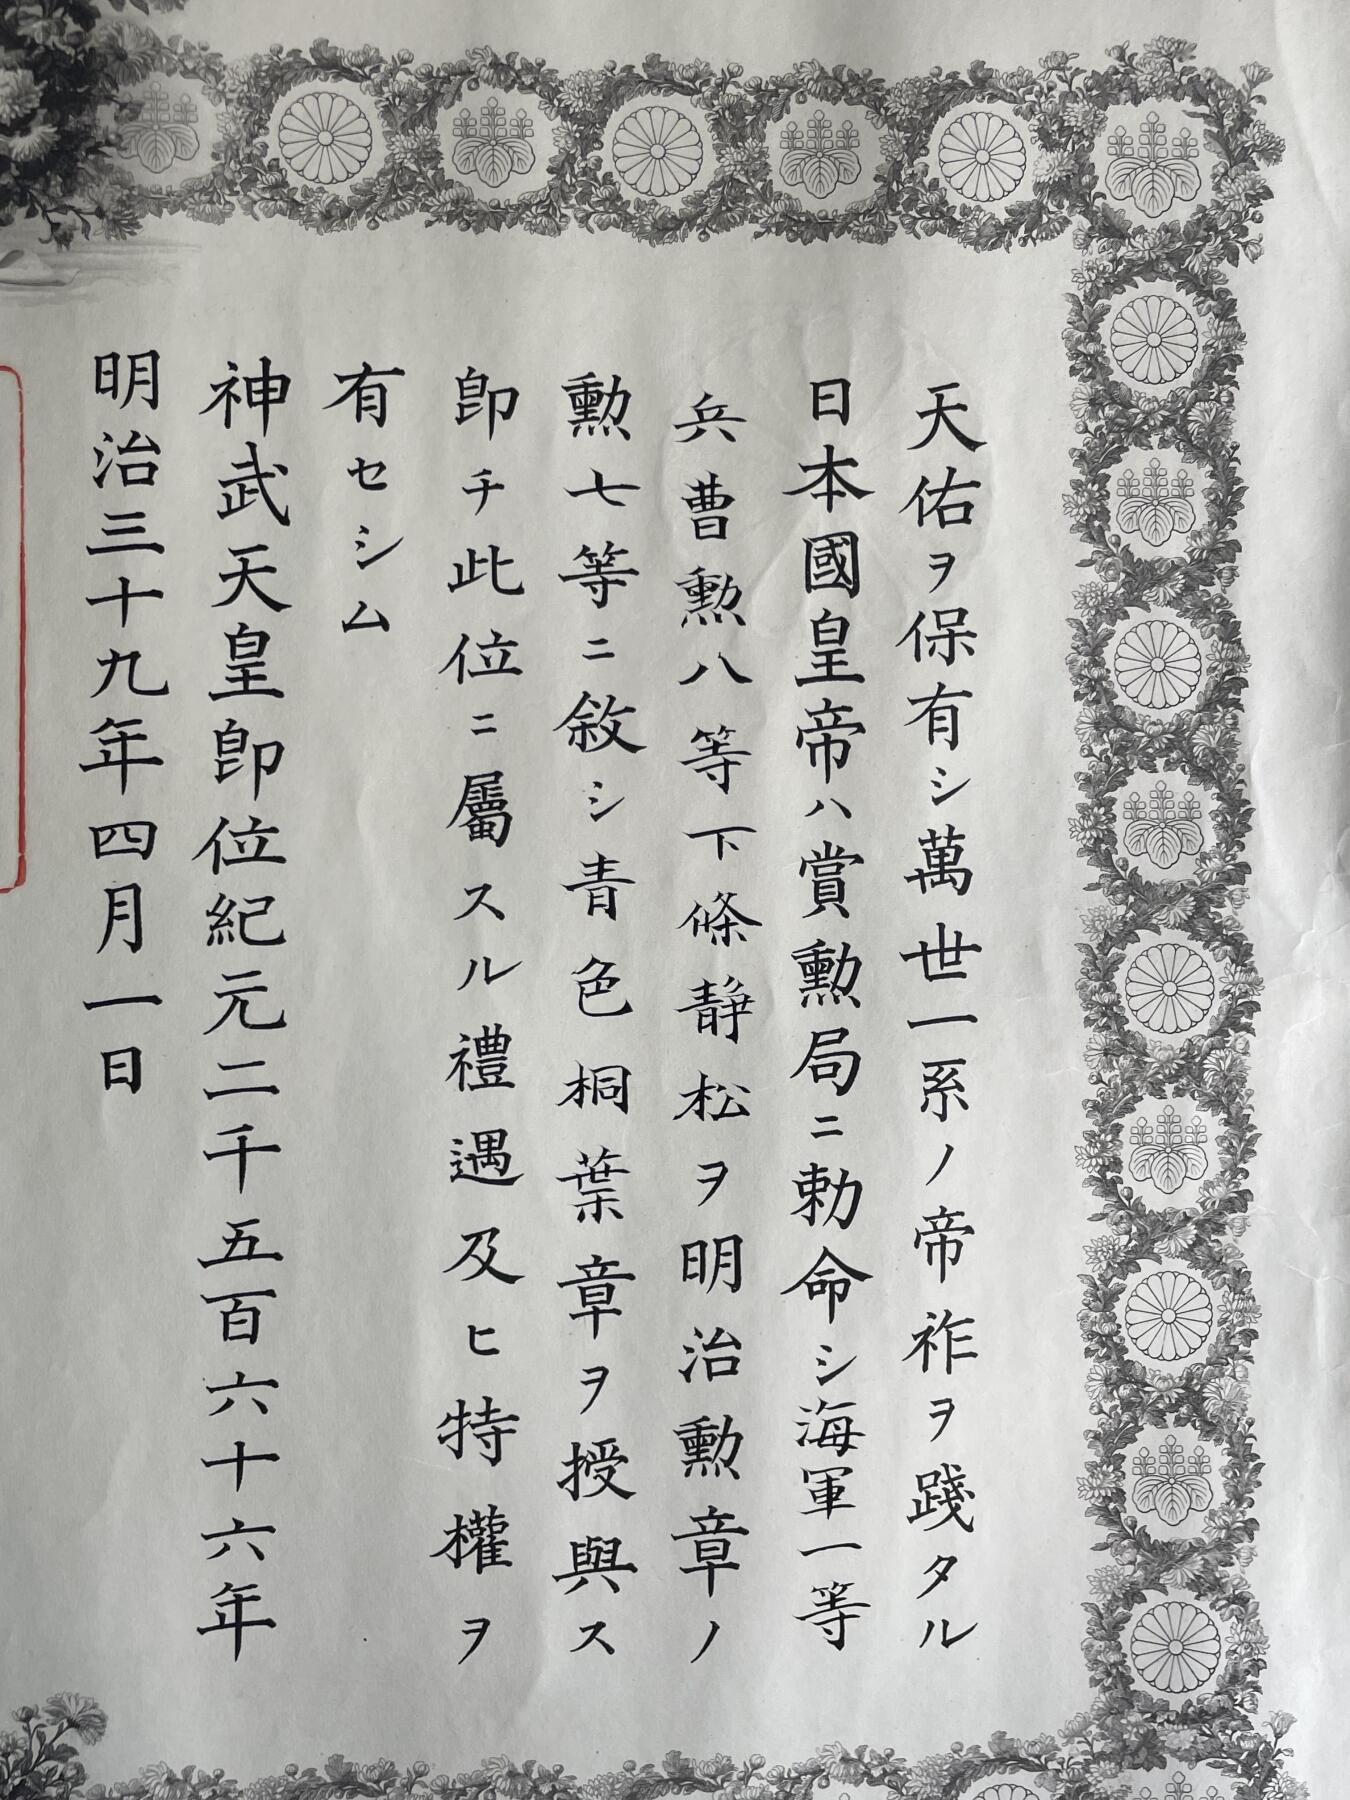 天佑ヲ保有シ萬世一系ノ帝祚ヲ踐タル
日本國皇帝ハ賞勲局ニ勅命シ海軍一等
兵曹勲八等下條静松ヲ明治勲章ノ
勲七等ニ敘シ青色桐葉章ヲ授與ス
卽チ此位ニ屬スル禮遇及ヒ特權ヲ
有セシム
神武天皇卽位紀元二千五百六十六年
明治三十九年四月一日